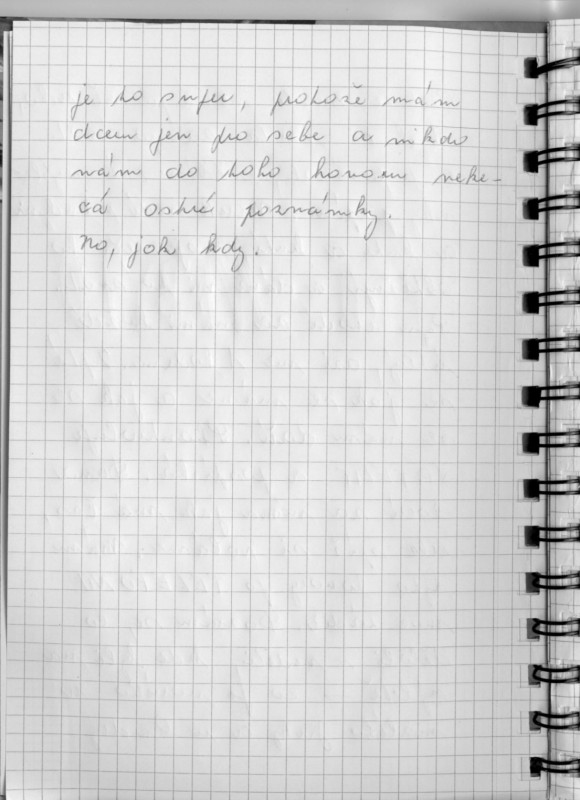 je to super, protože mám
dceru jen pro sebe a nikdo
nám do toho hovoru neke-
cá ostré poznámky.
No, jak kdy.